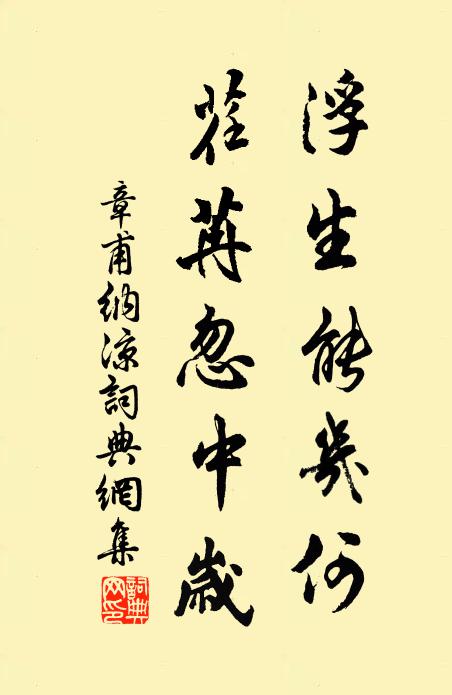 浮生能幾何
荏苒忽中歲
章甫納涼詞典網集
詞典